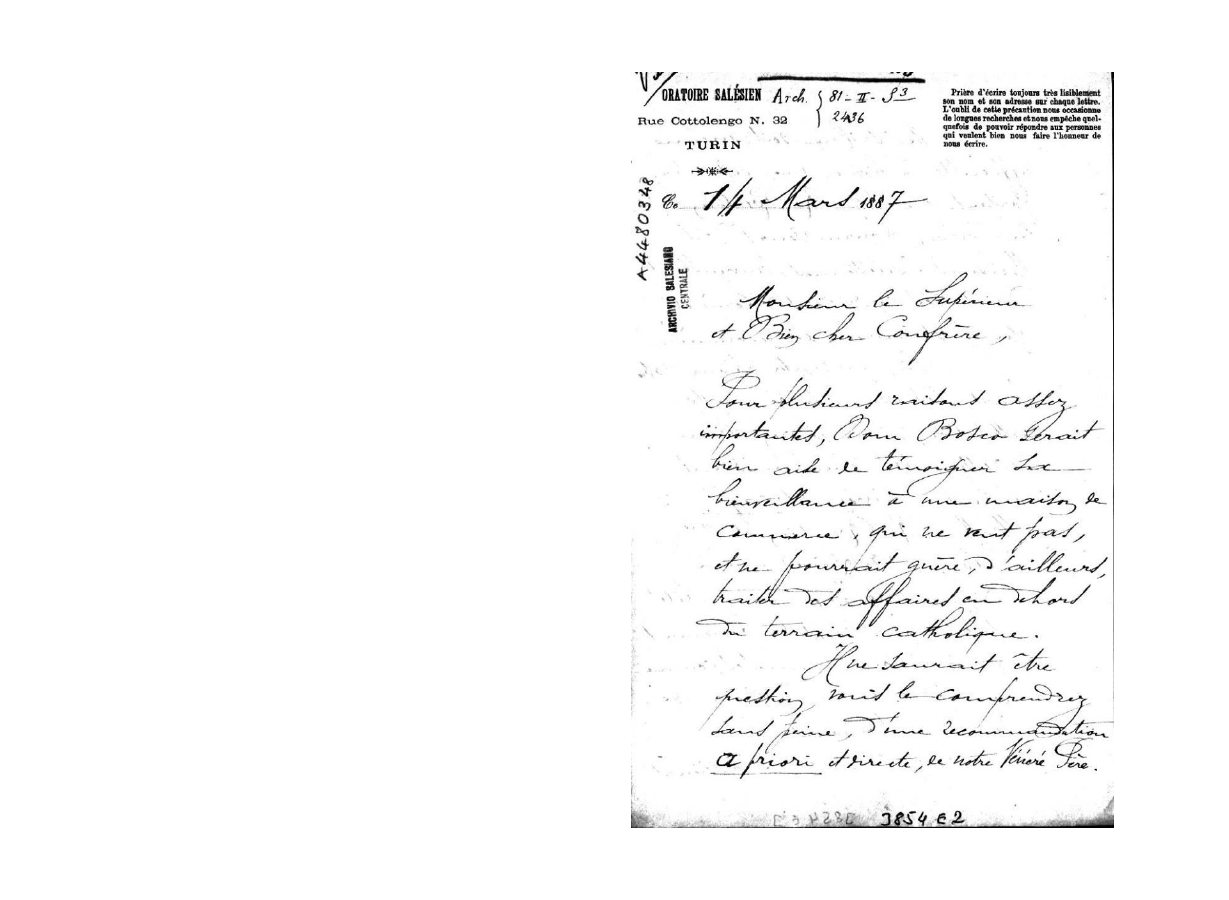 ORATOIRE SALÉSIEN
Rue Cottolengo N. 32
TURIN
Arch. 81 - II - S 3
2436
Prière d'écrire toujours très lisiblement
son nom et son adresse sur chaque lettre.
L'oubli de cette précaution nous occasionne
de longues recherches et nous empêche quel-
quefois de pouvoir répondre aux personnes
qui veulent bien nous faire l'honneur de
nous écrire.
A4480348
ARCHIVIO SALESIANO
CENTRALE
Ce 14 Mars 1887
Monsieur le Supérieur
et Bien cher Confrère,
Pour plusieurs raisons assez
importantes, Dom Bosco serait
bien aise de témoigner sa
bienveillance à une maison de
commerce, qui ne veut pas,
et ne pourrait guère, d'ailleurs,
traiter des affaires en dehors
du terrain catholique.
Il ne saurait être
question, vous le comprendrez
sans peine, d'une recommandation
a priori et directe, de notre Vénéré Père.
3854 E 2